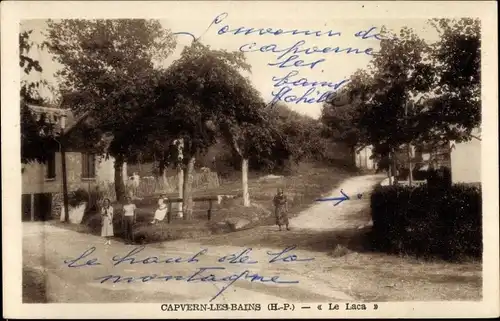 Souvenir de
capverne
les
bains
le haut de la
montagne
CAPVERN-LES-BAINS (H.-P.) — « Le Laca »